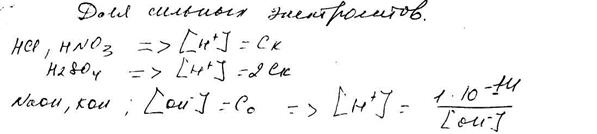 Для сильных электролитов.
HCl, HNO₃ => [H⁺] = Cк
H₂SO₄ => [H⁺] = 2Cк
NaOH, KOH ; [OH⁻] = C₀ => [H⁺] = 1·10⁻¹⁴ / [OH⁻]